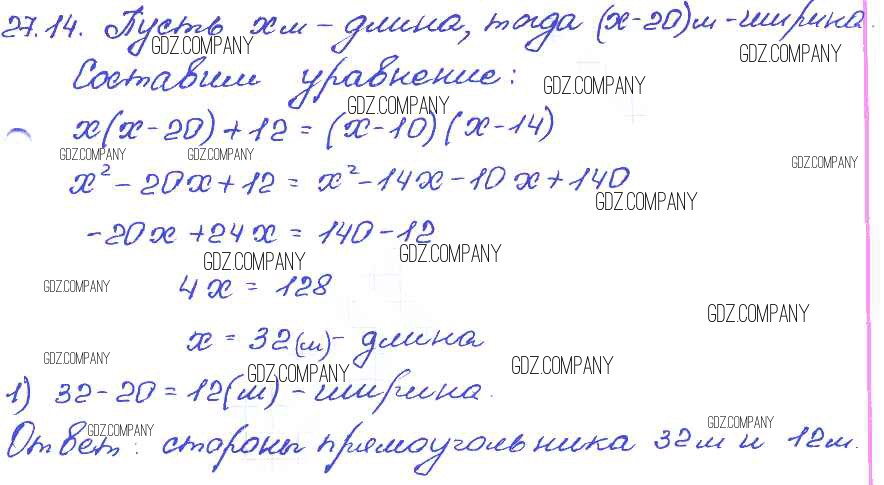 27.14. Пусть x м – длина, тогда (x-20)м - ширина.
GDZ.COMPANY GDZ.COMPANY
Составим уравнение:
GDZ.COMPANY GDZ.COMPANY
x(x-20)+12=(x-10)(x-14)
GDZ.COMPANY GDZ.COMPANY GDZ.COMPANY
x²-20x+12=x²-14x-10x+140
GDZ.COMPANY
-20x+24x=140-12
GDZ.COMPANY GDZ.COMPANY
GDZ.COMPANY 4x=128
GDZ.COMPANY
x=32(м)- длина
GDZ.COMPANY GDZ.COMPANY GDZ.COMPANY
1) 32-20=12(м)-ширина.
GDZ.COMPANY GDZ.COMPANY
Ответ: стороны прямоугольника 32м и 12м.